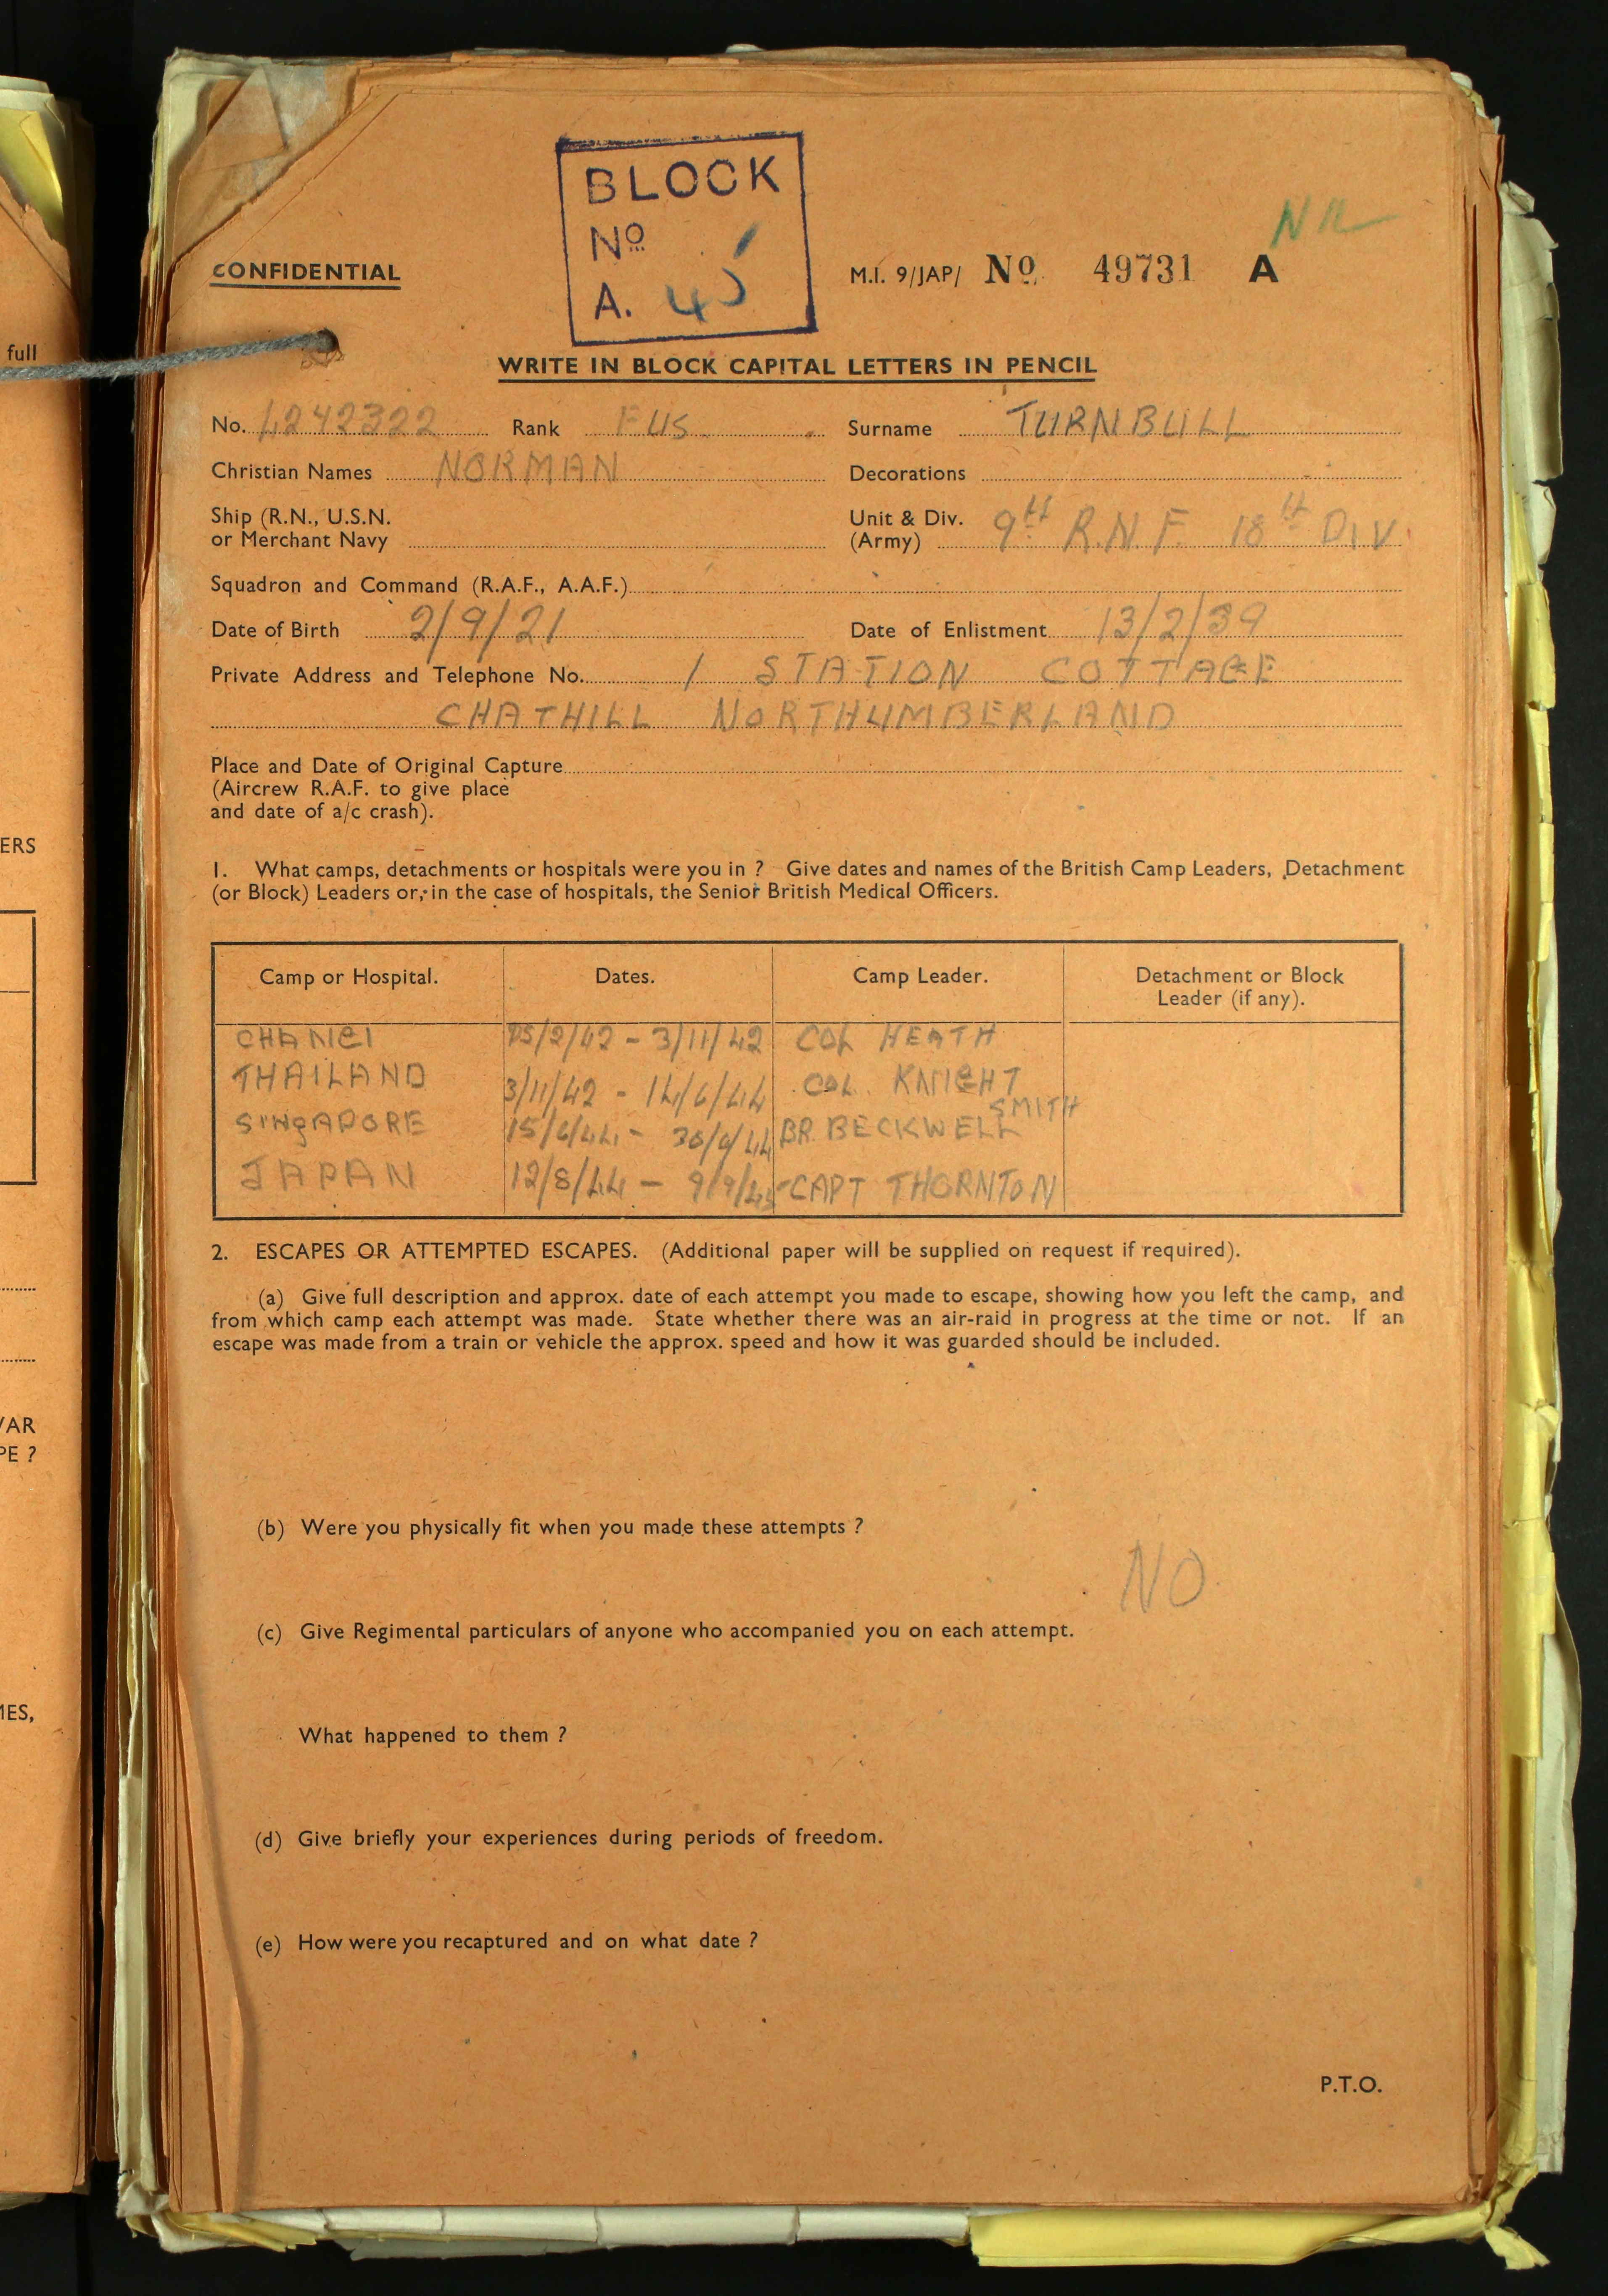 full
ERS
/AR
PE ?
MES,
BLOCK
Nº
A. 45
NIL
CONFIDENTIAL
M.I. 9/JAP/ Nº 49731 A
WRITE IN BLOCK CAPITAL LETTERS IN PENCIL
No. 4242322 Rank FUS Surname TURNBULL
Christian Names NORMAN Decorations
Ship (R.N., U.S.N. or Merchant Navy
Unit & Div. (Army) 9th R.N.F. 18th DIV.
Squadron and Command (R.A.F., A.A.F.)
Date of Birth 2/9/21 Date of Enlistment 13/2/39
Private Address and Telephone No. 1 STATION COTTAGE
CHATHILL NORTHUMBERLAND
Place and Date of Original Capture
(Aircrew R.A.F. to give place
and date of a/c crash).
1. What camps, detachments or hospitals were you in ? Give dates and names of the British Camp Leaders, Detachment
(or Block) Leaders or, in the case of hospitals, the Senior British Medical Officers.
Camp or Hospital. Dates. Camp Leader. Detachment or Block
Leader (if any).
CHANGI 15/2/42 - 3/11/42 COL HEATH
THAILAND 3/11/42 - 14/6/44 COL. KNIGHT
SINGAPORE 15/6/44 - 30/6/44 BR. BECKWELL SMITH
JAPAN 12/8/44 - 9/9/45 CAPT THORNTON
2. ESCAPES OR ATTEMPTED ESCAPES. (Additional paper will be supplied on request if required).
(a) Give full description and approx. date of each attempt you made to escape, showing how you left the camp, and
from which camp each attempt was made. State whether there was an air-raid in progress at the time or not. If an
escape was made from a train or vehicle the approx. speed and how it was guarded should be included.
(b) Were you physically fit when you made these attempts ?
NO
(c) Give Regimental particulars of anyone who accompanied you on each attempt.
What happened to them ?
(d) Give briefly your experiences during periods of freedom.
(e) How were you recaptured and on what date ?
P.T.O.